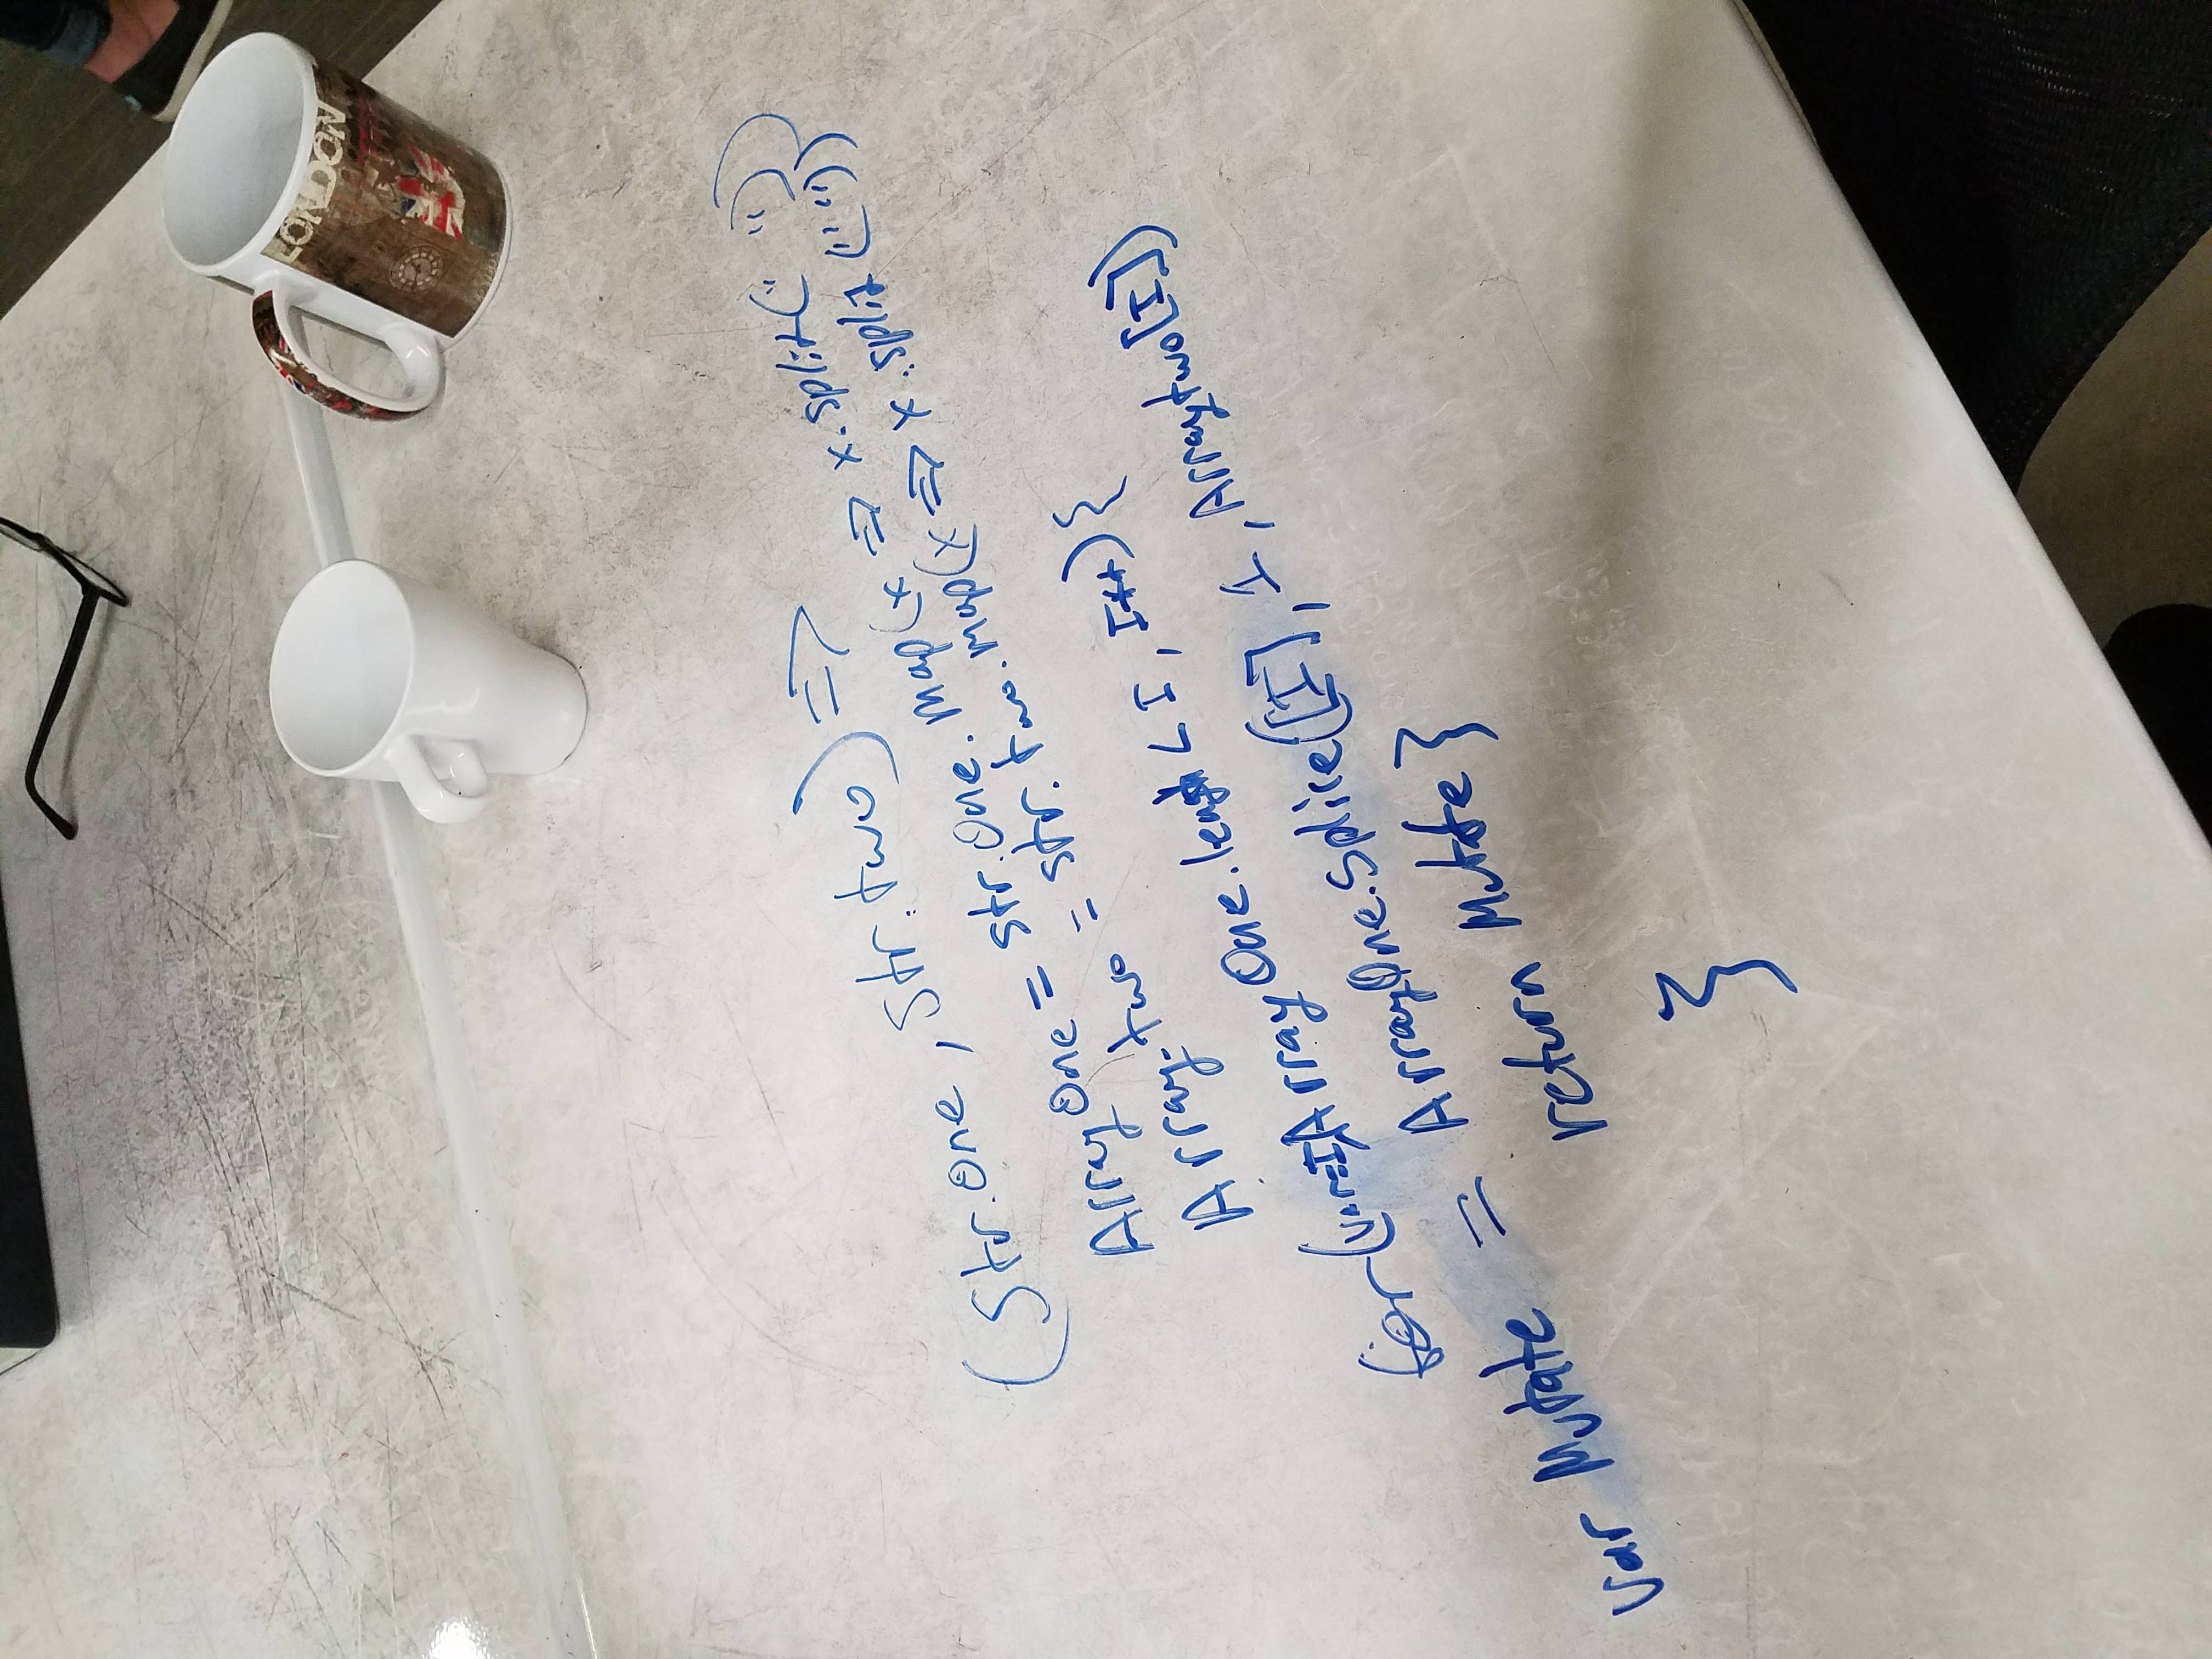 LONDON
(Str.One, Str.two) =>
ArrayOne = str.One.map(x => x.split(" "))
Array.two = str.two.map(x => x.split(" "))
for(var=I,ArrayOne.length < I, I++){
var Mutate = ArrayOne.Splice([I], 1, Arraytwo[I])
return Mutate}
}